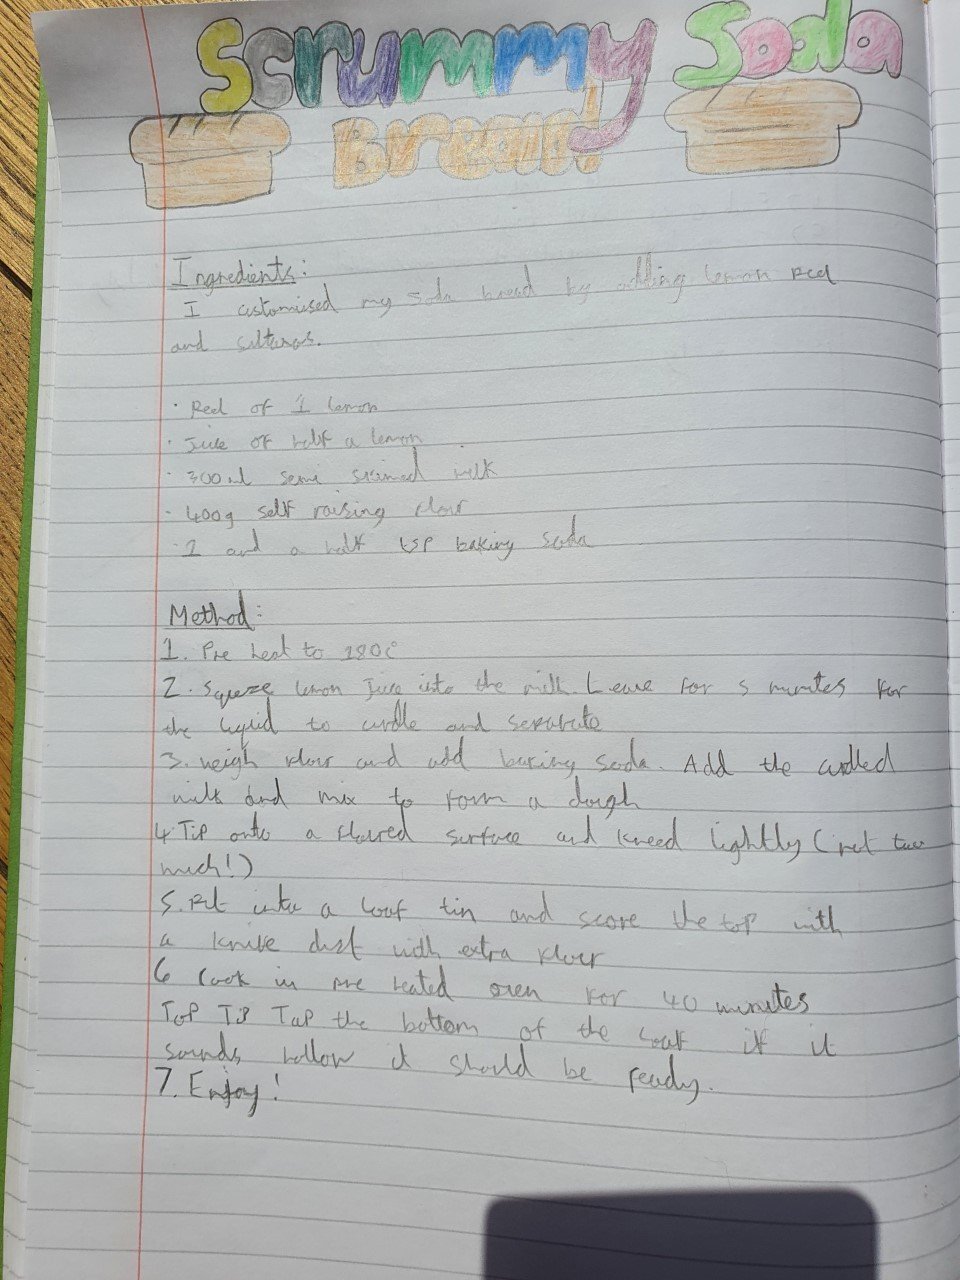 Scrummy Soda
Bread!
Ingredients:
I customised my soda bread by adding lemon peel
and sultanas.
· Peel of 1 lemon
· Juice of half a lemon
· 300ml semi skimmed milk
· 400g self raising flour
· 1 and a half tsp baking soda
Method:
1. Pre heat to 180c
2. Sqeeze lemon juice into the milk. Leave for 5 minutes for
the liquid to curdle and separate
3. weigh flour and add baking soda. Add the curdled
milk and mix to form a dough
4. Tip onto a floured surface and kneed lightly (not
much!)
5. Put into a loaf tin and score the top with
a knife dust with extra flour
6 Cook in pre heated oven for 40 minutes
Top Tip Tap the bottom of the loaf if it
sounds hollow it should be ready.
7. Enjoy!